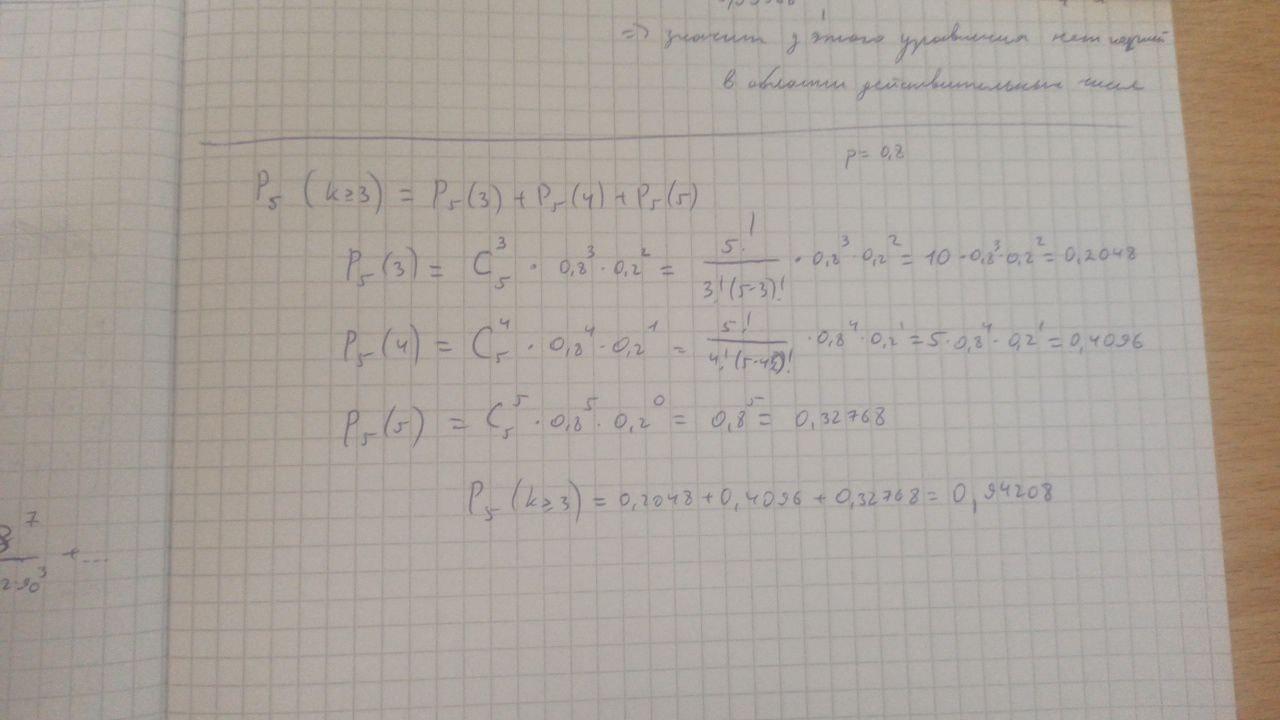 => значит у этого уравнения нет корней
в области действительных чисел
p = 0,8
P₅ (k≥3) = P₅(3) + P₅(4) + P₅(5)
P₅(3) = C₅³ · 0,8³ · 0,2² = 5! / 3!(5-3)! · 0,8³ · 0,2² = 10 · 0,8³ · 0,2² = 0,2048
P₅(4) = C₅⁴ · 0,8⁴ · 0,2¹ = 5! / 4!(5-4)! · 0,8⁴ · 0,2¹ = 5 · 0,8⁴ · 0,2¹ = 0,4096
P₅(5) = C₅⁵ · 0,8⁵ · 0,2⁰ = 0,8⁵ = 0,32768
P₅ (k≥3) = 0,2048 + 0,4096 + 0,32768 = 0,94208